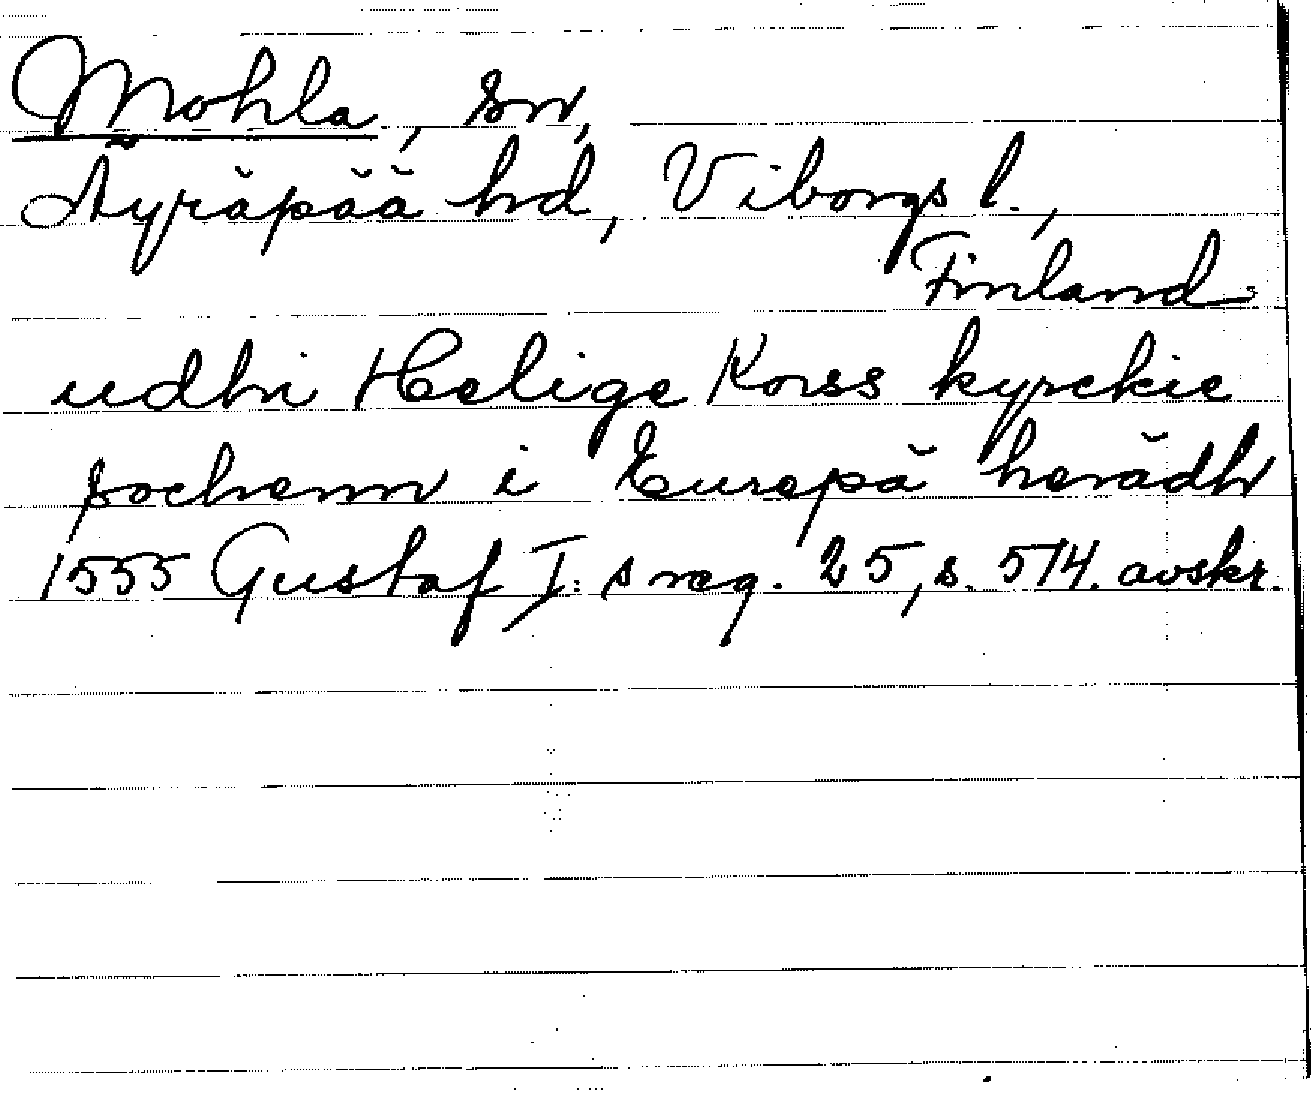 Mohla, sn,
Äyräpää hd, Viborgs l.,
Finland
udhi Helige Korss kyrckie
sochenn i Eurepä herädh
1555 Gustaf I:s reg. 25, s. 514. avskr.